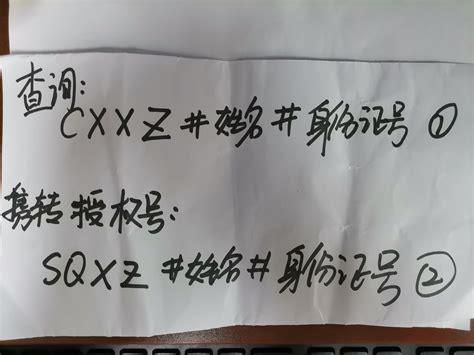 查询:
CXXZ#姓名#身份证号 ①
携转授权号:
SQXZ #姓名#身份证号 ②